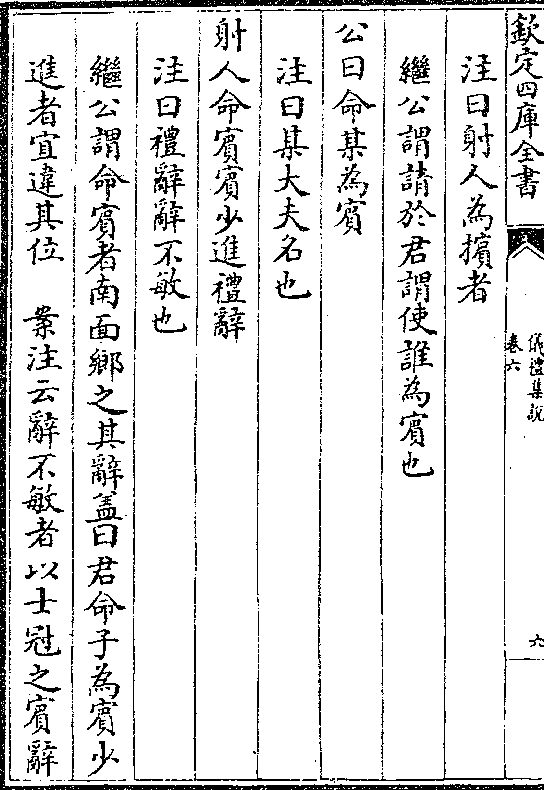 欽定四庫全書
儀禮集說
卷六
六
注曰射人為擯者
繼公謂請於君謂使誰為賓也
公曰命某為賓
注曰某大夫名也
射人命賓賓少進禮辭
注曰禮辭辭不敏也
繼公謂命賓者南面鄉之其辭蓋曰君命子為賓少
進者宜違其位 案注云辭不敏者以士冠之賓辭